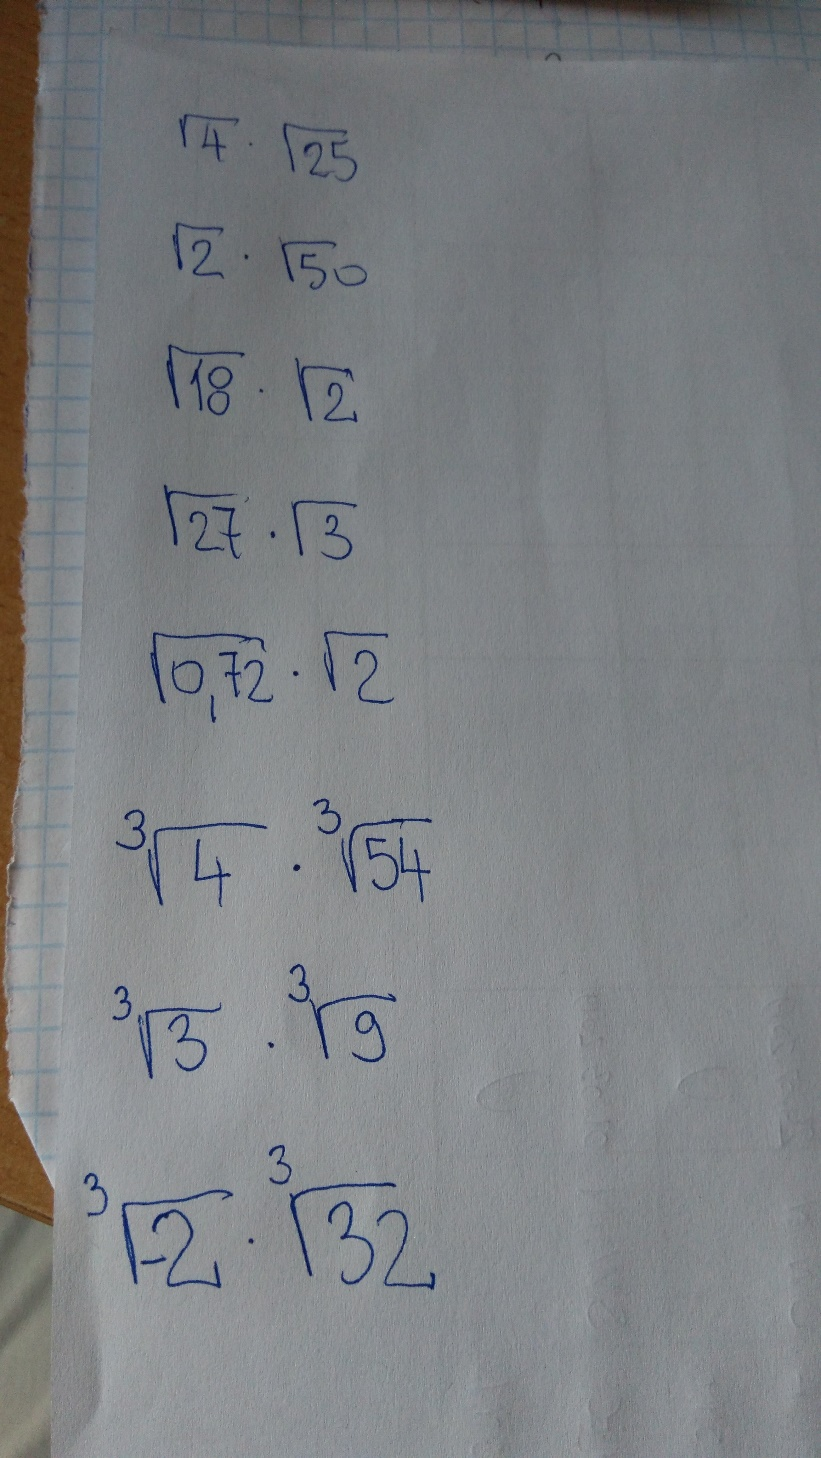 √4 · √25
√2 · √50
√18 · √2
√27 · √3
√0,72 · √2
³√4 · ³√54
³√3 · ³√9
³√-2 · ³√32